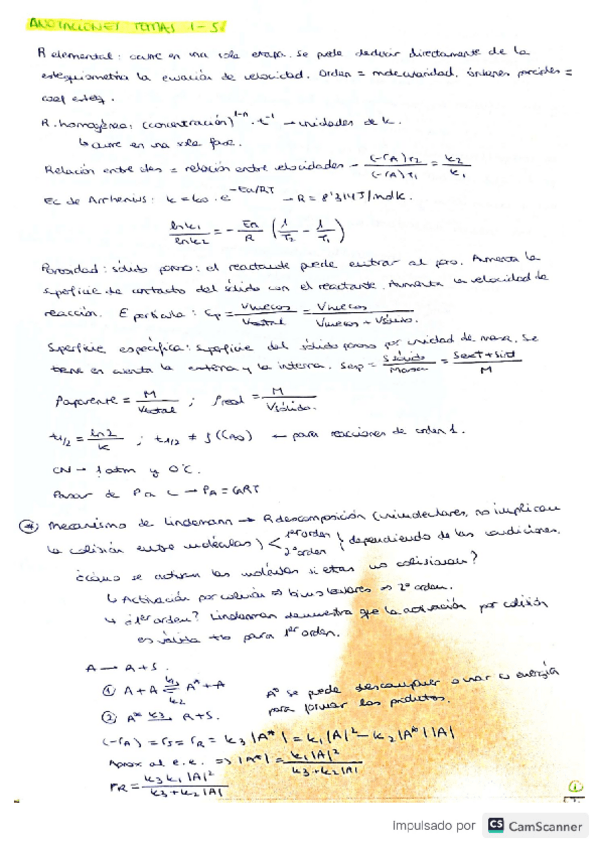 ANOTACIONES TEMAS 1-5
R elemental: ocurre en una sola etapa. Se puede deducir directamente de la
estequiometría la ecuación de velocidad. Orden = molecularidad. Órdenes parciales =
coef esteq.
R. homogénea: (concentración)^1-n · t^-1 → unidades de k.
↳ ocurre en una sola fase.
Relación entre ctes = relación entre velocidades - (-rA)T2 / (-rA)T1 = k2 / k1
Ec de Arrhenius: k = k0 · e^-Ea/RT → R = 8'314 J/molK.
lnk1 / lnk2 = - Ea / R (1/T2 - 1/T1)
Porosidad: sólido poroso: el reactante puede entrar al poro. Aumenta la
superficie de contacto del sólido con el reactante. Aumenta la velocidad de
reacción. E partícula: εp = Vhuecos / Vtotal = Vhuecos / Vhuecos + Vsólido.
Superficie específica: superficie del sólido poroso por unidad de masa. Se
tiene en cuenta la externa y la interna. Sesp = Ssólido / Masa = Sext + Sint / M
ρaparente = M / Vtotal ; ρreal = M / Vsólido.
t1/2 = ln2 / k ; t1/2 ≠ f(CA0) ← para reacciones de orden 1.
CN → 1 atm y 0°C.
Pasar de P a C → PA = CART
Mecanismo de Lindemann → R descomposición (unimoleculares, no implican
la colisión entre moléculas) < 1er orden 2º orden } dependiendo de las condiciones.
¿Cómo se activan las moléculas si éstas no colisionan?
↳ Activación por colisión ⇒ bimoleculares ⇒ 2º orden.
↳ ¿1er orden? Lindemann demuestra que la activación por colisión
es válida tb para 1er orden.
A → R + S.
① A + A ⇌ A* + A k1 k2
② A* k3→ R + S.
A* se puede descomponer o usar su energía
para formar los productos.
(-rA) = rS = rR = k3 |A*| = k1 |A|² - k2 |A*| |A|
Aprox. al e.e. ⇒ |A*| = k1 |A|² / k3 + k2 |A|
rR = k3 k1 |A|² / k3 + k2 |A|
①
Impulsado por CS CamScanner